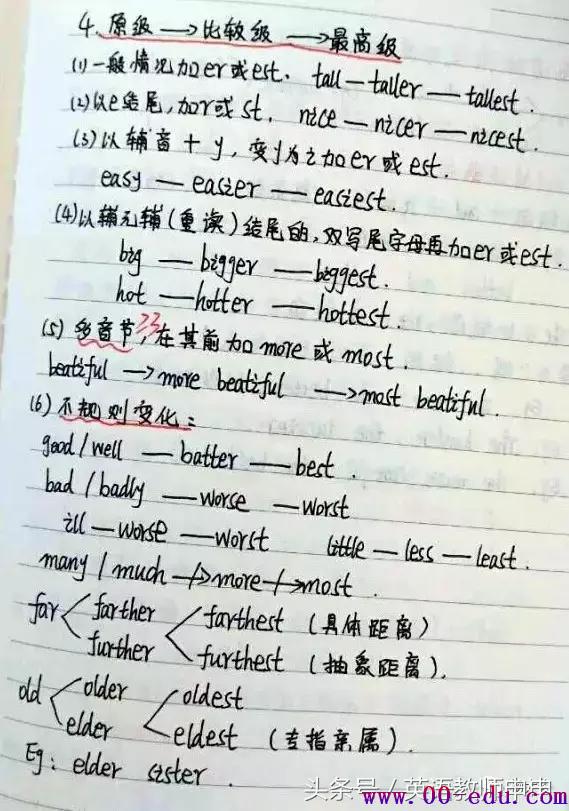 4. 原级 → 比较级 → 最高级
(1) 一般情况加er或est. tall — taller — tallest.
(2) 以e结尾, 加r或st. nice — nicer — nicest.
(3) 以辅音+y, 变y为i加er或est.
easy — easier — easiest.
(4) 以辅元辅(重读)结尾的, 双写尾字母再加er或est.
big — bigger — biggest.
hot — hotter — hottest.
(5) 多音节, 在其前加more或most.
beatiful → more beatiful → most beatiful.
(6) 不规则变化:
good/well — batter — best.
bad/badly — worse — worst
ill — worse — worst little — less — least.
many/much → more → most.
far farther farthest (具体距离)
further furthest (抽象距离).
old older oldest
elder eldest (专指亲属).
Eg: elder sister.
头条号/英语教师申申
www.00-edu.com